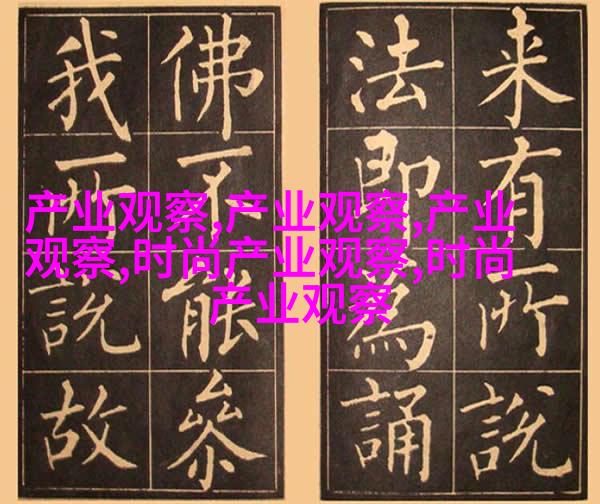 来有所説
法即為誦
佛不能叅
我所説故
产业观察,产业观察,产业
观察,时尚产业观察,时尚
产业观察